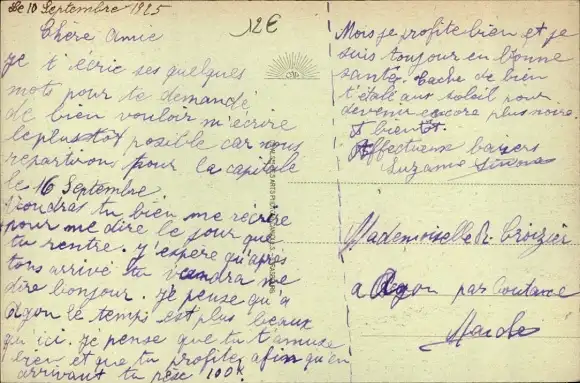 Le 10 Septembre 1925
12€
Chère Amie
je t'écric ses quelques
mots pour te demandé
de bien vouloir m'écrire
le plus tot posible car nous
repartirons pour la capitale
le 16 Septembre
voudras tu bien me récrire
pour me dire le jour que
tu rentre. j'espère qu'après
tons arrivé tu viendra me
dire bonjour. je pense qu'a
Agon le temps est plus beaux
qu'ici. je pense que tu t'amuse
bien et que tu profites afin qu'en
arrivant tu pèse 100K.
Mois je profite bien et je
suis toujour en bonne
santé. Tache de bien
t'étalé au soleil pour
devenir encore plus noire.
A bientôt.
Affectueux baisers
Suzanne
Mademoiselle R. Croizier
a Agon par Coutance
Manche